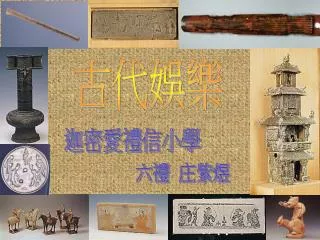 古代娛樂
迦密愛禮信小學
六禮 莊紫煜